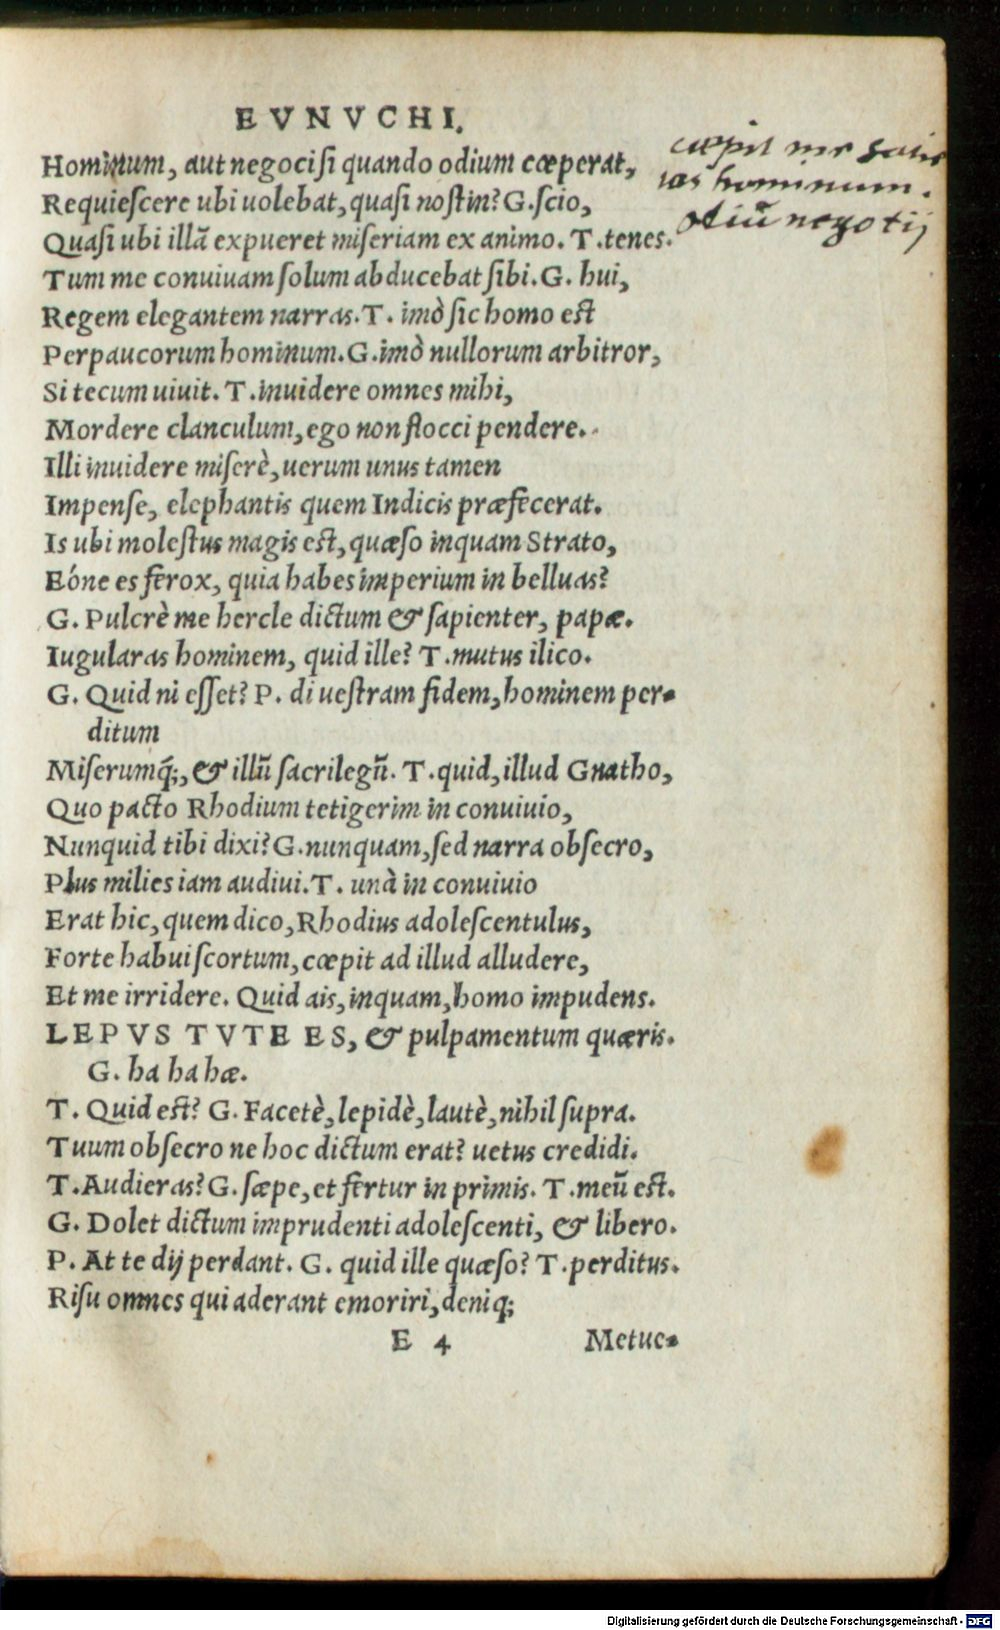 EVNVCHI.
Hominum, aut negoci si quando odium cœperat,
Requiescere ubi uolebat, quasi nostin? G. scio,
Quasi ubi illā expueret miseriam ex animo. T. tenes.
Tum me conuiuam solum abducebat sibi. G. hui,
Regem elegantem narras. T. imò sic homo est
Perpaucorum hominum. G. imò nullorum arbitror,
Si tecum uiuit. T. inuidere omnes mihi,
Mordere clanculum, ego non flocci pendere.
Illi inuidere miserè, uerum unus tamen
Impense, elephantis quem Indicis præfecerat.
Is ubi molestus magis est, quæso inquam Strato,
Eóne es ferox, quia habes imperium in belluas?
G. Pulcrè me hercle dictum & sapienter, papæ.
Iugularas hominem, quid ille? T. mutus ilico.
G. Quid ni esset? P. di uestram fidem, hominem per-
ditum
Miserumq́;, & illū sacrilegū. T. quid, illud Gnatho,
Quo pacto Rhodium tetigerim in conuiuio,
Nunquid tibi dixi? G. nunquam, sed narra obsecro,
Plus milies iam audiui. T. unà in conuiuio
Erat hic, quem dico, Rhodius adolescentulus,
Forte habui scortum, cœpit ad illud alludere,
Et me irridere. Quid ais, inquam, homo impudens.
LEPVS TVTE ES, & pulpamentum quæris.
G. ha ha hæ.
T. Quid est? G. Facetè, lepidè, lautè, nihil supra.
Tuum obsecro ne hoc dictum erat? uetus credidi.
T. Audieras? G. sæpe, et fertur in primis. T. meū est.
G. Dolet dictum imprudenti adolescenti, & libero.
P. At te dij perdant. G. quid ille quæso? T. perditus.
Risu omnes qui aderant emoriri, deniq;
E 4 Metue-
cœpit me satie
tas hominum.
odiū negotij
Digitalisierung gefördert durch die Deutsche Forschungsgemeinschaft - DFG